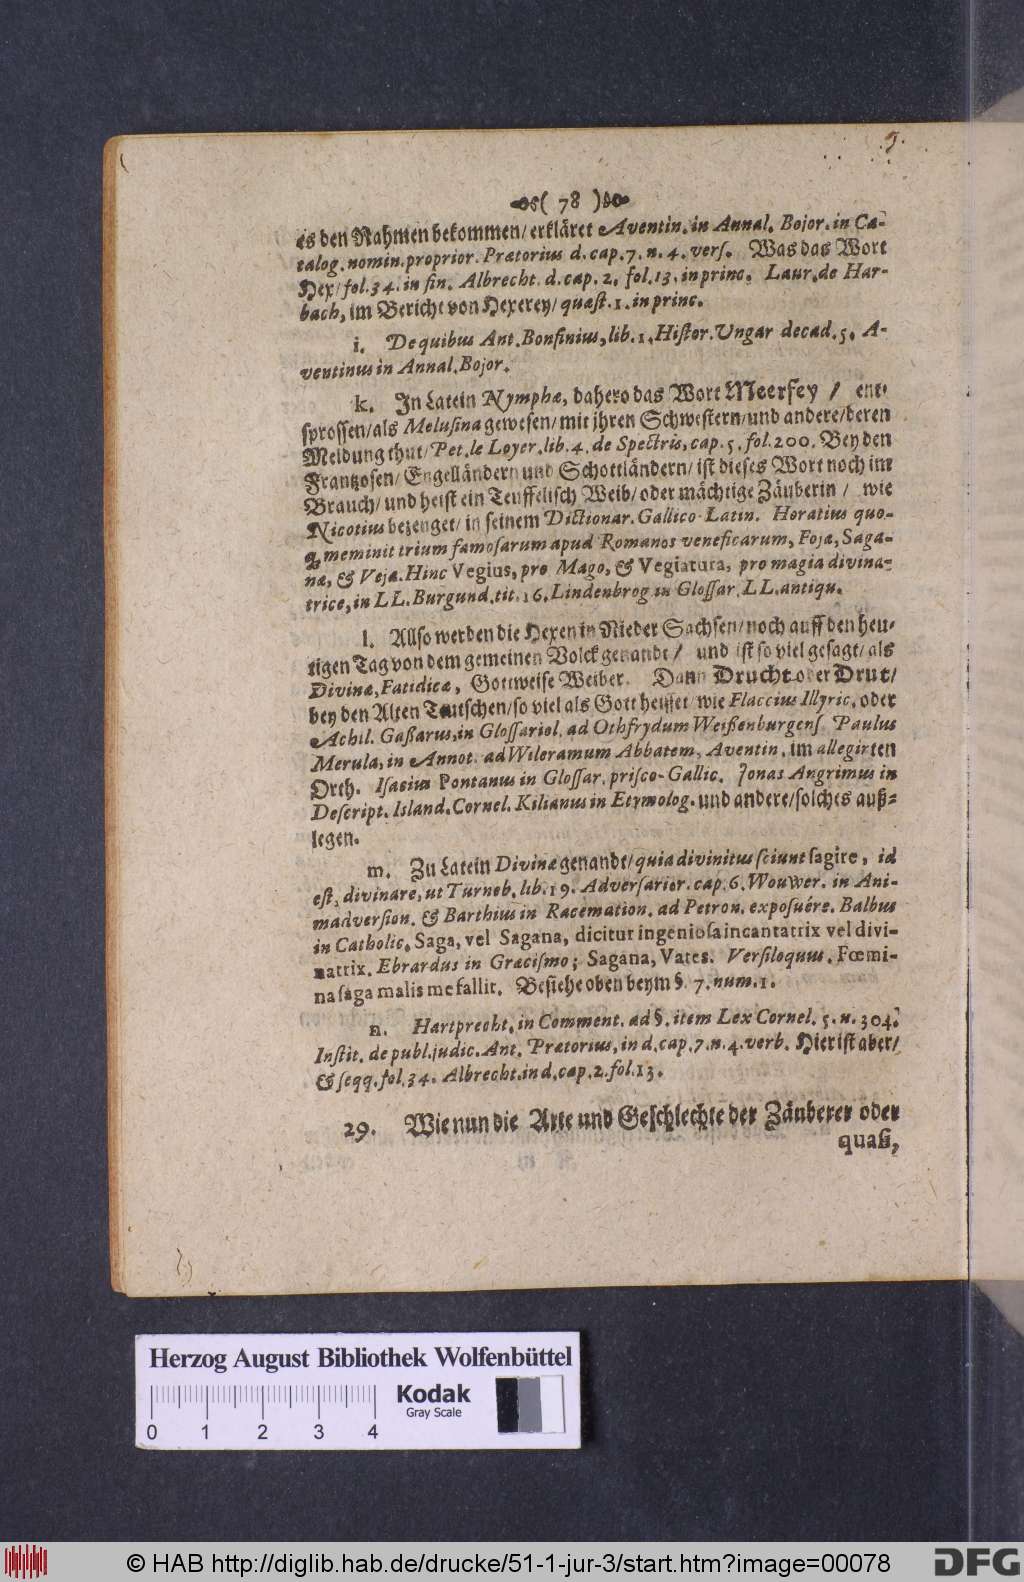 ( 78 )
es den Nahmen bekommen/ erkläret Aventin. in Annal. Bojor. in Ca-
talog. nomin. proprior. Prætorius d. cap. 7. n. 4. vers. Was das Wort
Hex/ fol. 34. in fin. Albrecht. d. cap. 2. fol. 13. in princ. Laur. de Har-
bach, im Bericht von Hexerey/ quæst. 1. in princ.
i. De quibus Ant. Bonfinius, lib. 1. Histor. Ungar decad. 5. A-
ventinus in Annal. Bojor.
k. In Latein Nymphæ, dahero das Wort Meerfey / ent-
sprossen/ als Melusina gewesen/ mit jhren Schwestern/ und andere/ deren
Meldung thut/ Pet. le Loyer. lib. 4. de Spectris, cap. 5. fol. 200. Bey den
Frantzosen/ Engelländern und Schottländern/ ist dieses Wort noch im
Brauch/ und heist ein Teuffelisch Weib/ oder mächtige Zäuberin / wie
Nicotius bezeuget/ in seinem Dictionar. Gallico-Latin. Horatius quo-
q; meminit trium famosarum apud Romanos veneficarum, Foja, Saga-
næ, & Veja. Hinc Vegius, pro Mago, & Vegiatura, pro magia divina-
trice, in LL. Burgund. tit. 16. Lindenbrog in Glossar. LL. antiqu.
l. Allso werden die Hexen in Nieder Sachsen/ noch auff den heu-
tigen Tag von dem gemeinen Volck genandt/ und ist so viel gesagt/ als
Divinæ, Fatidicæ, Gottweise Weiber. Dann Drucht oder Drut/
bey den Alten Teutschen/ so viel als Gott heisset/ wie Flaccius Illyric. oder
Achil. Gaßarus, in Glossariol. ad Othfrydum Weißenburgens. Paulus
Merula, in Annot. ad Wileramum Abbatem, Aventin. im allegirten
Orth. Isacius Pontanus in Glossar. prisco-Gallic. Jonas Angrimus in
Descript. Island. Cornel. Kilianus in Etymolog. und andere/ solches auß-
legen.
m. Zu Latein Divinæ genandt/ quia divinitus sciunt sagire, id
est, divinare, ut Turneb. lib. 19. Adversarior. cap. 6. Wouwer. in Ani-
madversion. & Barthius in Racemation. ad Petron. exposuére. Balbus
in Catholic. Saga, vel Sagana, dicitur ingeniosa incantatrix vel divi-
natrix. Ebrardus in Græcismo; Sagana, Vates. Versiloquus. Fœmi-
na saga malis me fallit. Besiehe oben beym §. 7. num. 1.
n. Hartprecht. in Comment. ad §. item Lex Cornel. 5. n. 304.
Instit. de publ. judic. Ant. Prætorius, in d. cap. 7. n. 4. verb. Hier ist aber/
& seqq. fol. 34. Albrecht. in d. cap. 2. fol. 13.
29. Wie nun die Arte und Geschlechte der Zäuberer oder
quaß,
Herzog August Bibliothek Wolfenbüttel
Kodak
Gray Scale
0 1 2 3 4
© HAB http://diglib.hab.de/drucke/51-1-jur-3/start.htm?image=00078
DFG